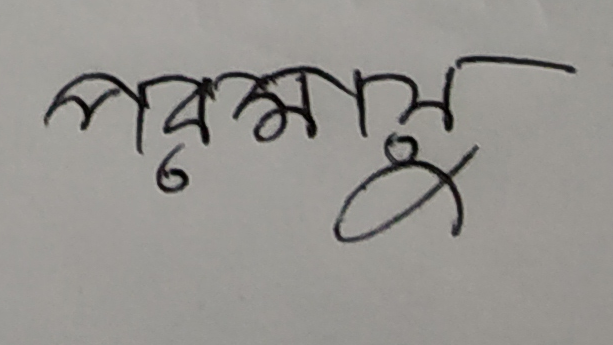 পরমাণু